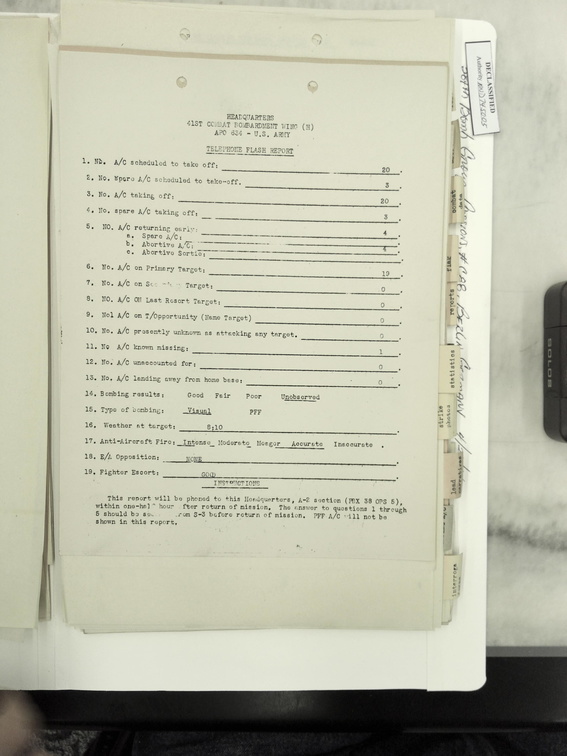 HEADQUARTERS
41ST COMBAT BOMBARDMENT WING (H)
APO 634 - U.S. ARMY
TELEPHONE FLASH REPORT
1. No. A/C scheduled to take off: 20.
2. No. Spare A/C scheduled to take-off. 3.
3. No. A/C taking off: 20.
4. No. spare A/C taking off: 3.
5. NO. A/C returning early: 4.
a. Spare A/C:
b. Abortive A/C: 4.
c. Abortive Sortie: .
6. No. A/C on Primary Target: 19.
7. No. A/C on Target: 0.
8. NO. A/C ON Last Resort Target: 0.
9. No. A/C on T/Opportunity (Name Target) 0.
10. No. A/C presently unknown as attacking any target. 0.
11. No A/C known missing: 1.
12. No. A/C unaccounted for: 0.
13. No. A/C landing away from home base: 0.
14. Bombing results: Good Fair Poor Unobserved
15. Type of bombing: Visual PFF
16. Weather at target: 8;10.
17. Anti-Aircraft Fire: Intense Moderate Meager Accurate Inaccurate .
18. E/A Opposition: NONE.
19. Fighter Escort: GOOD.
INSTRUCTIONS
This report will be phoned to this Headquarters, A-2 section (PBX 38 OPS 5),
within one-half hour after return of mission. The answer to questions 1 through
5 should be from S-3 before return of mission. PFF A/C will not be
shown in this report.
DECLASSIFIED
Authority NND 745005
combat data
flak
reports
statistics
strike photos
lead